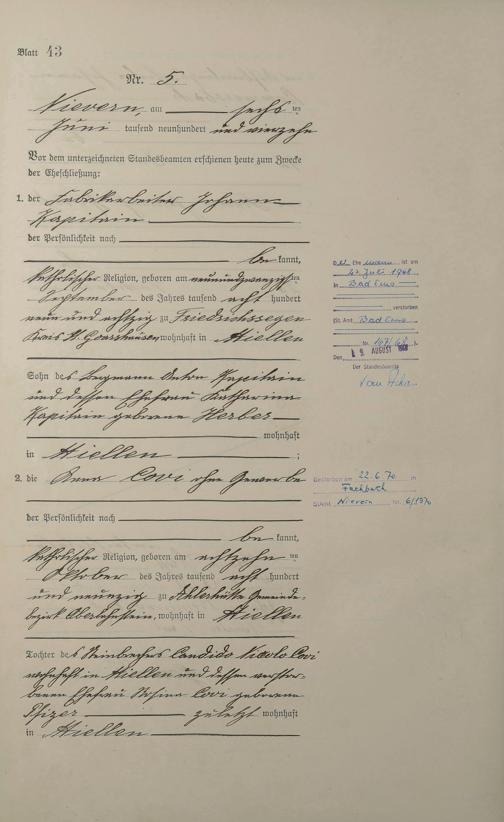 Blatt 43
Nr. 5.
Nievern, am sechs ten
Juni tausend neunhundert und vierzehn
Vor dem unterzeichneten Standesbeamten erschienen heute zum Zwecke
der Eheschließung:
1. der Fabrikarbeiter Johann
Kapitain
der Persönlichkeit nach
be kannt,
katholischer Religion, geboren am neunundzwanzigsten
September des Jahres tausend acht hundert
neun und achtzig zu Friedrichssegen
Kreis St. Goarshausen, wohnhaft in Miellen
Sohn des Bergmann Anton Kapitain
und dessen Ehefrau Katharina
Kapitain geborene Herber
wohnhaft
in Miellen ;
2. die Anna Covi ohne Gewerbe
der Persönlichkeit nach
be kannt,
katholischer Religion, geboren am achtzehn ten
Oktober des Jahres tausend acht hundert
und neunzig zu Ahlerhütte Gemeinde-
bezirk Oberlahnstein, wohnhaft in Miellen
Tochter des Steinbrechers Candido Nicolo Covi
wohnhaft in Miellen und dessen verstor-
benen Ehefrau Rosina Covi geborene
zuletzt wohnhaft
in Miellen
Ehe ist am
Juli 1968
in Bad Ems
verstorben
St. Amt Bad Ems
Nr. 107/68
Den 19. AUGUST
Der Standesbeamte
Gestorben am 22.6.70 in
Fachbach
StAmt Nievern Nr. 6/1970